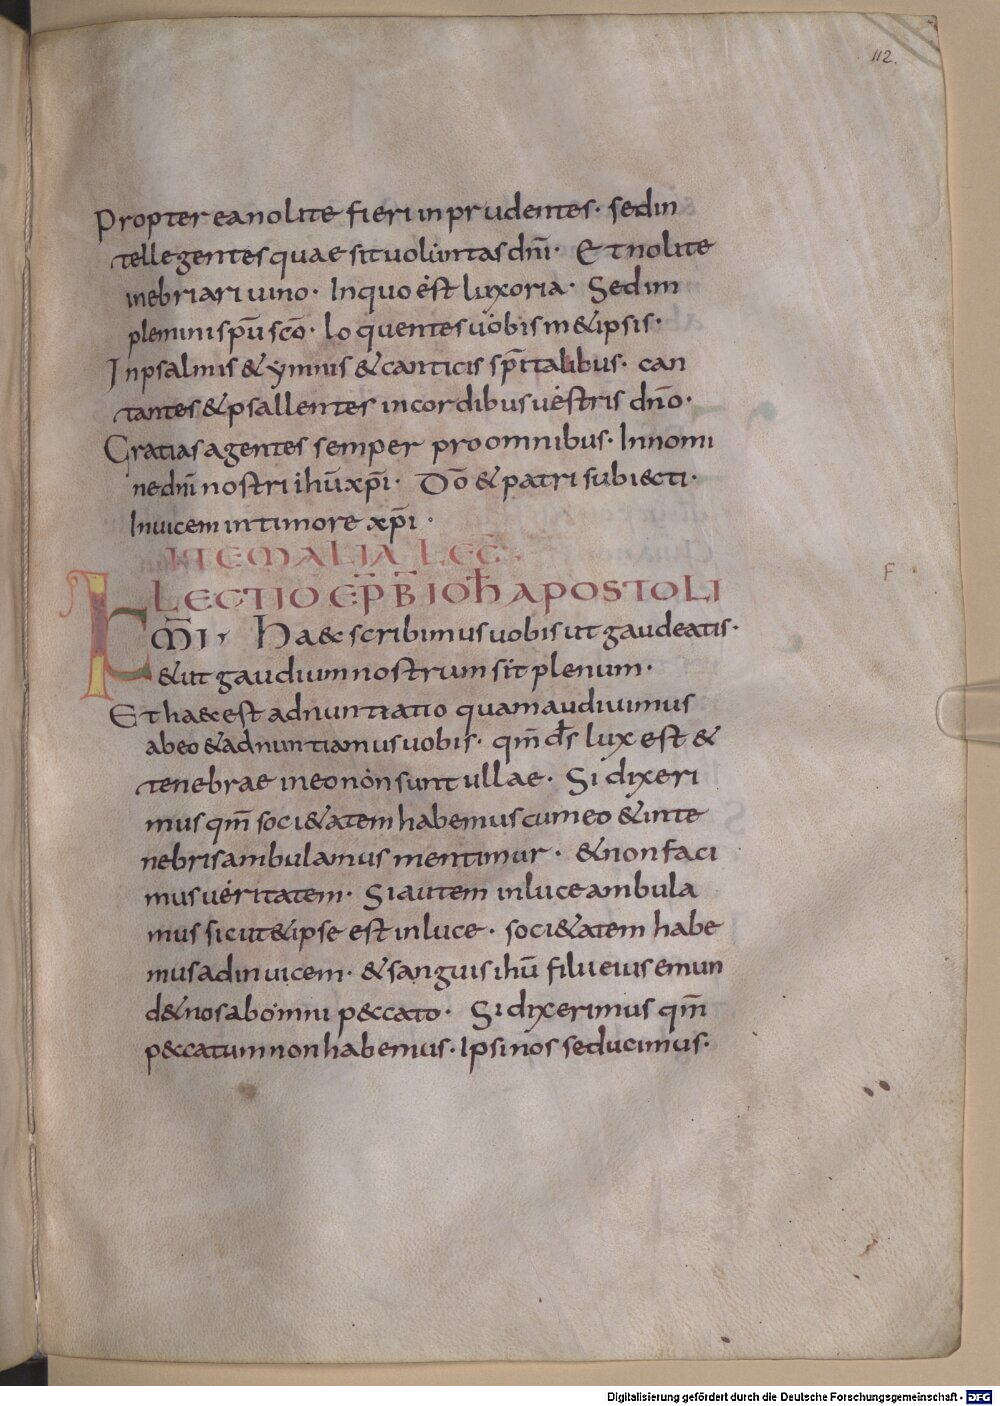 112.
Propter ea nolite fieri inprudentes· sed in
tellegentes quae sit voluntas dnī· Et nolite
inebriari uino· In quo est luxoria· Sed im
plemini spū scō· loquentes uobism&ipsis·
In psalmis & ymnis & canticis spītalibus· can
tantes & psallentes in cordibus uestris dnō·
Gratias agentes semper pro omnibus· In nomi
ne dnī nostri ihū xpī· Dō & patri subiecti·
Inuicem in timore xpī·
ITEM ALIA LEC̄·
LECTIO EP̄ B̄ IOH̄ APOSTOLI
FRM̄I, Ha&c scribimus uobis ut gaudeatis·
& ut gaudium nostrum sit plenum·
Et ha&c est adnuntiatio quam audiuimus
ab eo & adnuntiamus uobis· qm̄ d̄s lux est &
tenebrae in eo non sunt ullae· Si dixeri
mus qm̄ soci&atem habemus cum eo & in te
nebris ambulamus mentimur· & non faci
mus ueritatem· Si autem in luce ambula
mus sicut & ipse est in luce· soci&atem habe
mus ad inuicem· & sanguis ihū filii eius emun
d& nos ab omni peccato· Si dixerimus qm̄
peccatum non habemus· Ipsi nos seducimus·
F
Digitalisierung gefördert durch die Deutsche Forschungsgemeinschaft - DFG